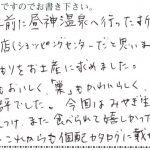 ですのでお書き下さい。
前に昼神温泉へ行った折
店(ショッピングセンターだと思いま
もりをお土産に求めました。
もおいしく、葉もやわららしく
評でした。今回はみやぎ生
つけ、また食べられて嬉しかっ
これからも個配カタログに載せ